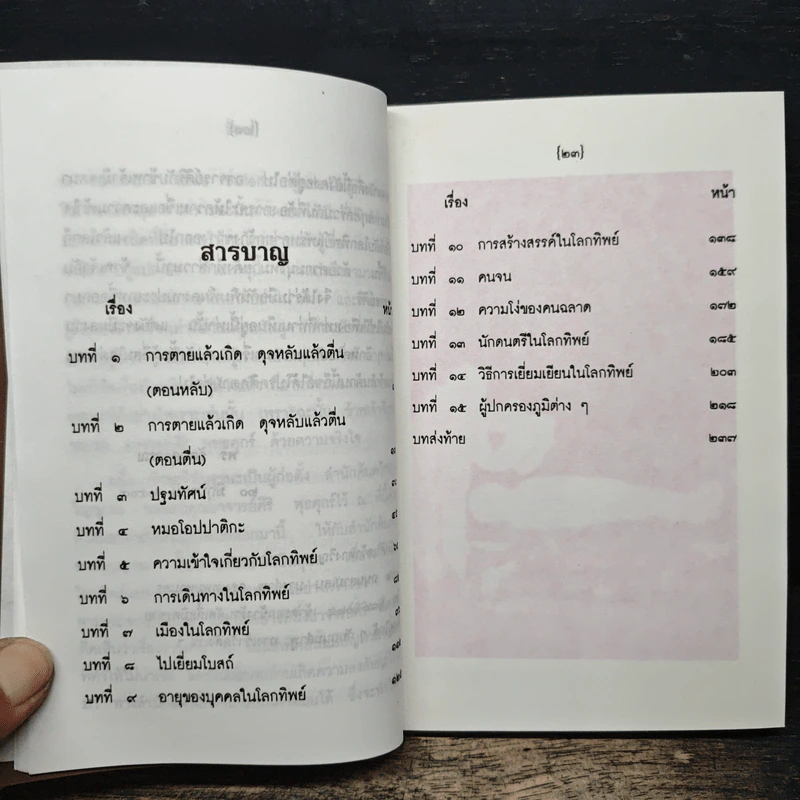 สารบาญ
เรื่อง
บทที่ ๑ การตายแล้วเกิด ดุจหลับแล้วตื่น
(ตอนหลับ)
บทที่ ๒ การตายแล้วเกิด ดุจหลับแล้วตื่น
(ตอนตื่น)
บทที่ ๓ ปฐมทัศน์
บทที่ ๔ หมอโอปปาติกะ
บทที่ ๕ ความเข้าใจเกี่ยวกับโลกทิพย์
บทที่ ๖ การเดินทางในโลกทิพย์
บทที่ ๗ เมืองในโลกทิพย์
บทที่ ๘ ไปเยี่ยมโบสถ์
บทที่ ๙ อายุของบุคคลในโลกทิพย์
{๒๓}
เรื่อง หน้า
บทที่ ๑๐ การสร้างสรรค์ในโลกทิพย์ ๑๓๘
บทที่ ๑๑ คนจน ๑๕๙
บทที่ ๑๒ ความโง่ของคนฉลาด ๑๗๒
บทที่ ๑๓ นักดนตรีในโลกทิพย์ ๑๘๕
บทที่ ๑๔ วิธีการเยี่ยมเยียนในโลกทิพย์ ๒๐๓
บทที่ ๑๕ ผู้ปกครองภูมิต่าง ๆ ๒๑๘
บทส่งท้าย ๒๓๗